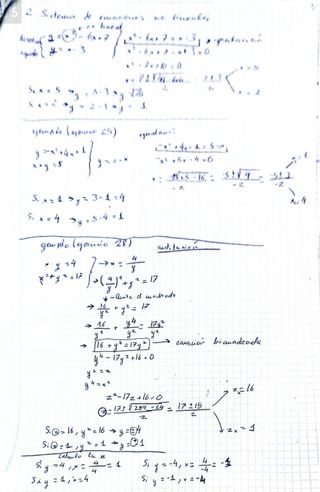 5
2. Sistemas de ecuaciones no lineales
no lineal
y = x² - 6x + 7
y = x - 3
x² - 6x + 7 = x - 3 → igualación
x² - 6x + 7 - x + 3 = 0
x² - 7x + 10 = 0
x = 5
x = 2
Si x = 5 → y = 5 - 3 → y = 2
Si x = 2 → y = 2 - 3 → y = -1
ejemplo (ejercicio 25)
igualación
x + y = 5
y = 5 - x
x² + 5x - 4 = 0
-2
x = 1
x = 4
Si x = 1 → y = 5 - 1 = 4
Si x = 4 → y = 5 - 4 = 1
ejemplo (ejercicio 28)
sustitución
x · y = 4
x² + y² = 17
→ x = 4/y
→ (4/y)² + y² = 17
→ 16/y² + y² = 17
→ 16/y² + y⁴/y² = 17y²/y²
→ 16 + y⁴ = 17y² → ecuación bicuadrada
y⁴ - 17y² + 16 = 0
y² = z
y⁴ = z²
z² - 17z + 16 = 0
z = 17 ± √289 - 64 / 2 = 17 ± 15 / 2
z₁ = 16
z₂ = 1
Si z = 16, y² = 16 → y = ±4
Si z = 1, y² = 1 → y = ±1
calculo la x
Si y = 4, x = 4/4 = 1
Si y = -4, x = 4/-4 = -1
Si y = 1, x = 4
Si y = -1, x = -4